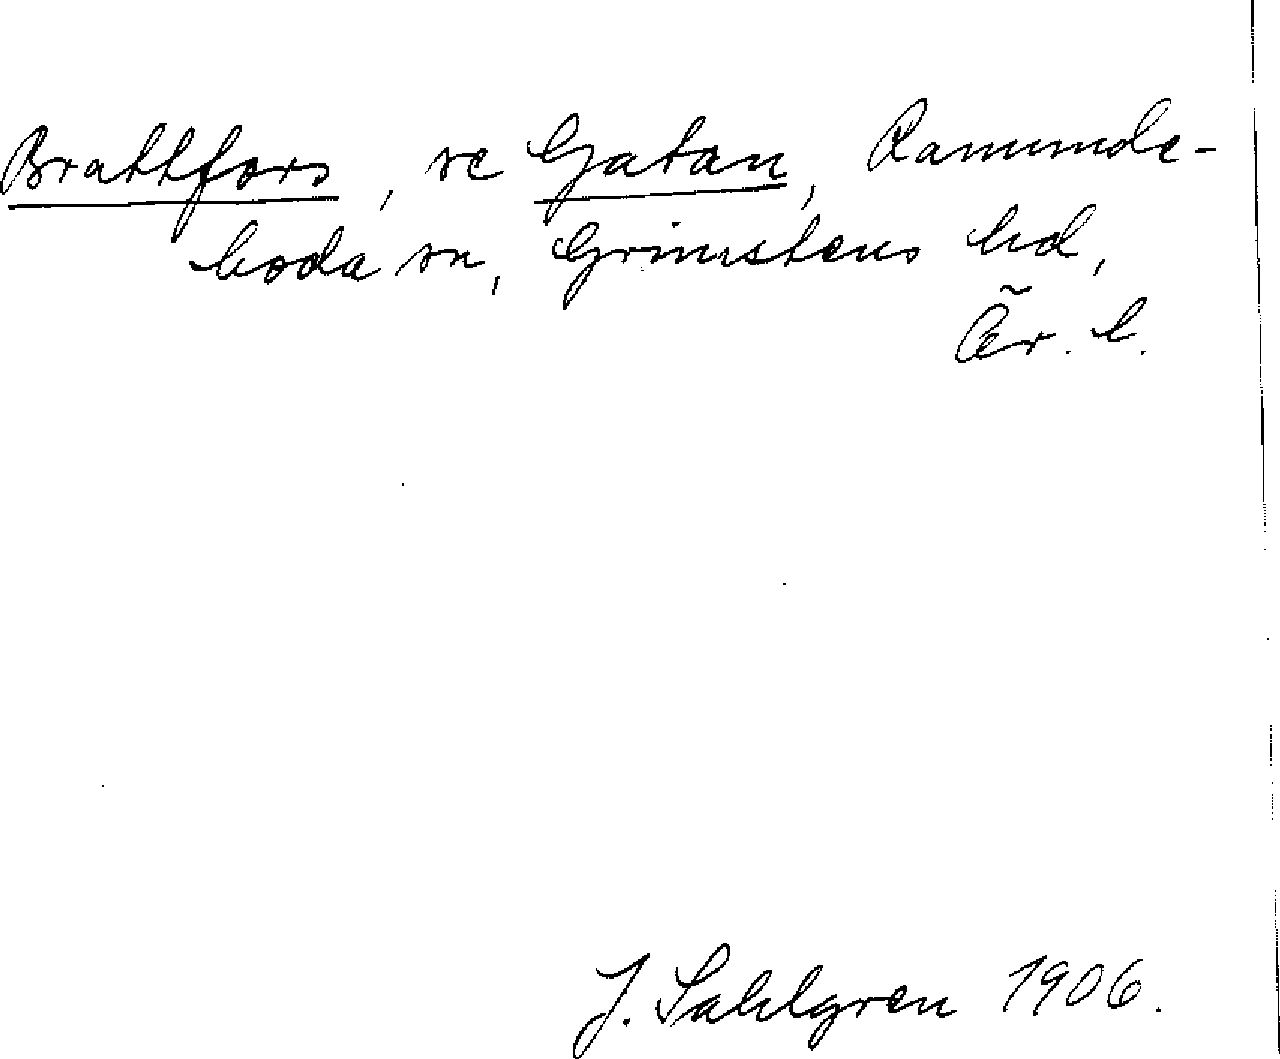 Brattfors, se Gatan, Ramunde-
boda sn, Grimstens hd,
Ör. l.
J. Sahlgren 1906.